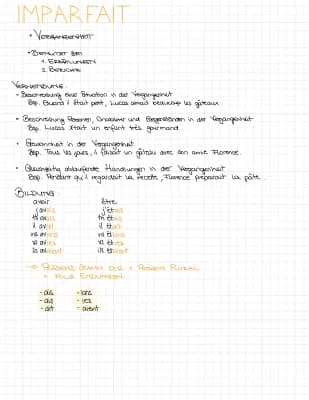 IMPARFAIT
• VERGANGENHEIT
• BENUTZT BEI
1. ERZÄHLUNGEN
2. BERICHTEN
VERWENDUNG:
• Beschreibung einer Situation in der Vergangenheit
Bsp. Quand il était petit, Lucas aimait beaucoup les gâteaux.
• Beschreibung Personen, Charakter und Gegenständen in der Vergangenheit
Bsp. Lucas était un enfant très gourmand.
• Gewohnheit in der Vergangenheit
Bsp. Tous les jours, il faisait un gâteau avec son amie Florence.
• Gleichzeitig ablaufende Handlungen in der Vergangenheit
Bsp. Pendant qu'il regardait la recette, Florence préparait la pâte.
BILDUNG:
avoir être
j'avais j'étais
tu avais tu étais
il avait il était
ns avions ns étions
vs aviez vs étiez
ils avaient ils étaient
→ PRÄSENS STAMM DER 1. PERSON PLURAL
+ FOLG. ENDUNGEN
-ais -ions
-ais -iez
-ait -aient